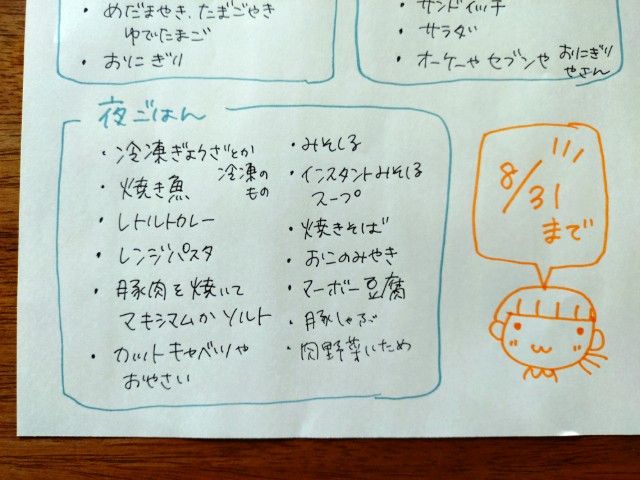 ・めだまやき、たまごやき
ゆでたまご
・おにぎり
・サンドイッチ
・サラダ
・オーケーや セブンや おにぎり
やさん
夜ごはん
・冷凍ぎょうざとか
冷凍の
もの
・焼き魚
・レトルトカレー
・レンジパスタ
・豚肉を焼いて
マキシマムか ソルト
・カットキャベツや
おやさい
・みそしる
・インスタントみそしる
スープ
・焼きそば
・おこのみやき
・マーボー豆腐
・豚しゃぶ
・肉野菜いため
8/31
まで